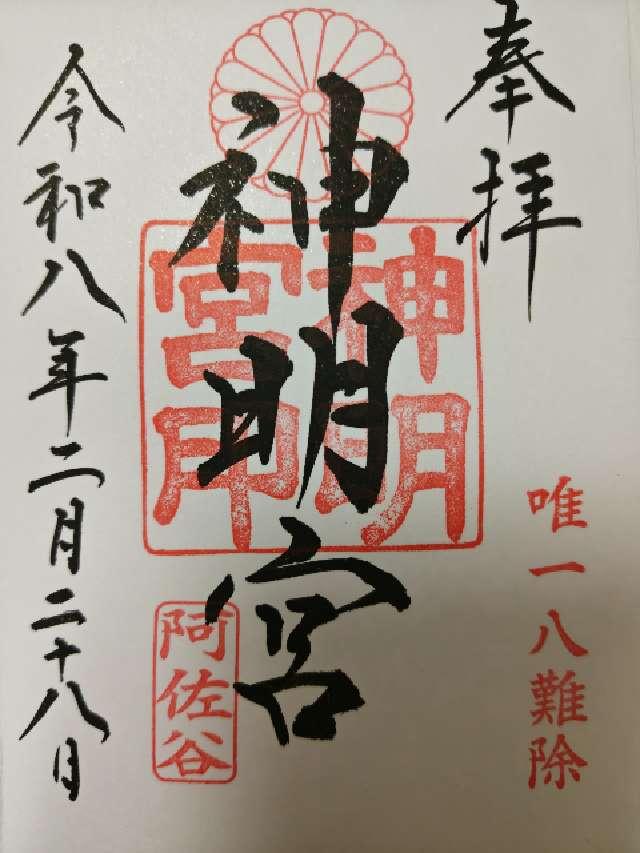 奉拝
唯一八難除
神明宮
神明
宮印
阿佐谷
令和八年二月二十八日